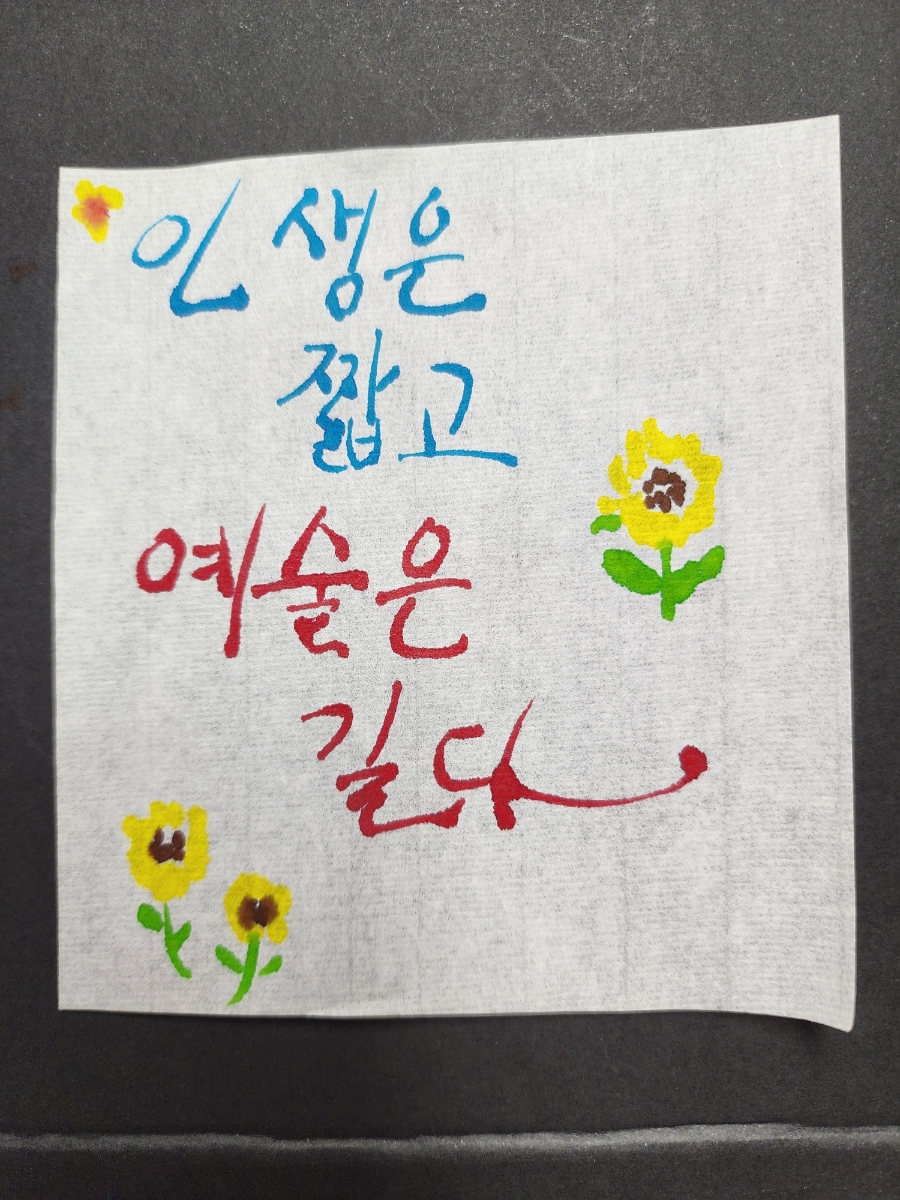 인생은
짧고
예술은
길다